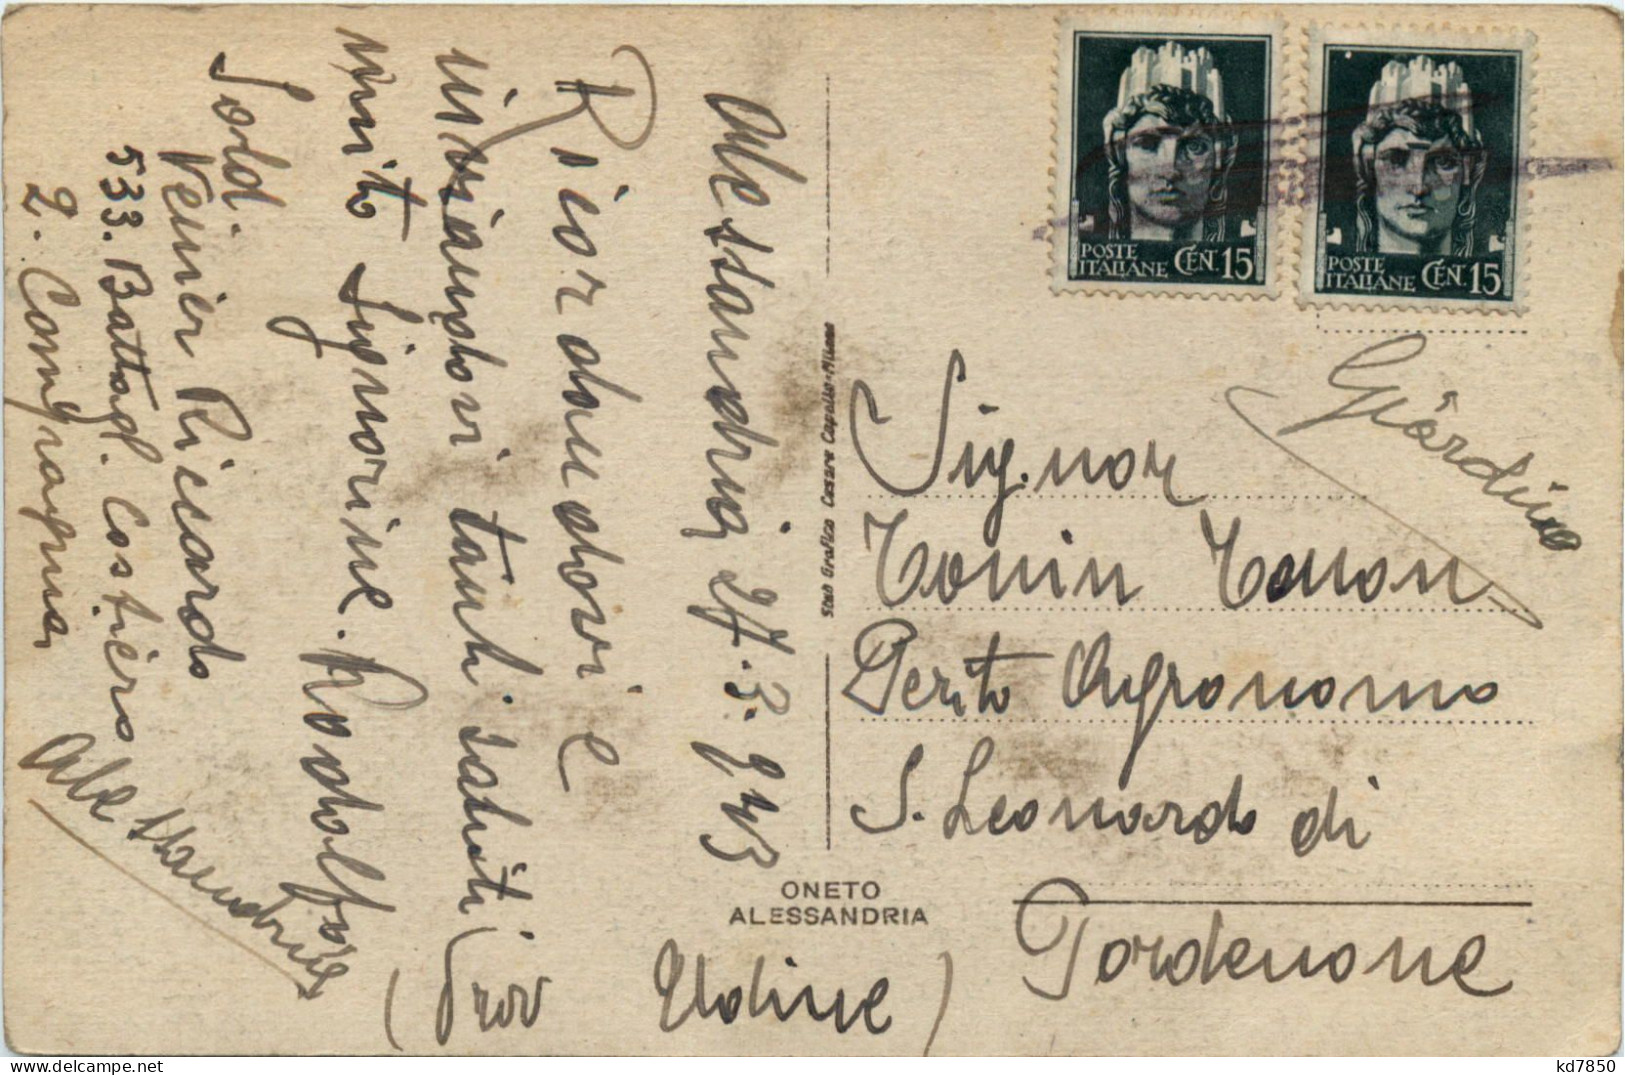 Alessandria 27.3.943
Ricordandovi e
inviandovi tanti saluti
unito Signorine. Rodolfo
Sold.
Venier Riccardo
533. Battagl. Costiero
2. Compagnia
Alessandria
POSTE
ITALIANE CENT. 15
POSTE
ITALIANE CENT. 15
Giardino
Signor
Tonin
Perito Agronomo
S. Leonardo di
Pordenone
(Prov Udine)
Stab Grafico Cesare Capello-Milano
ONETO
ALESSANDRIA
kd7850